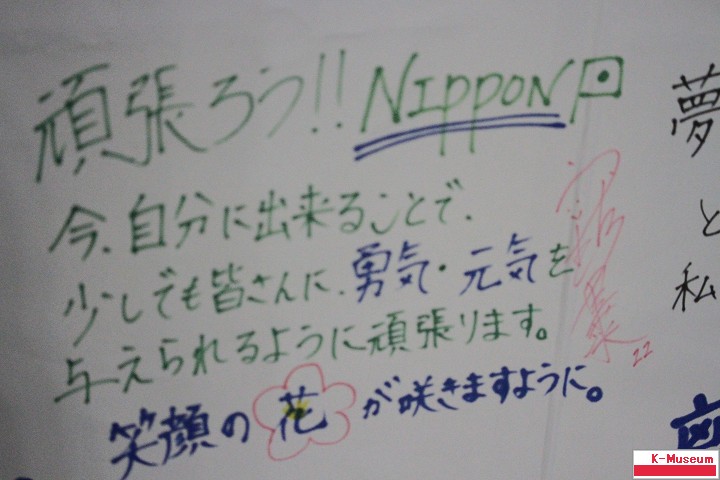 頑張ろう!! NIPPON
今、自分に出来ることで、
少しでも皆さんに、勇気・元気を
与えられるように頑張ります。
笑顔の花が咲きますように。
22
夢
と
私
K-Museum